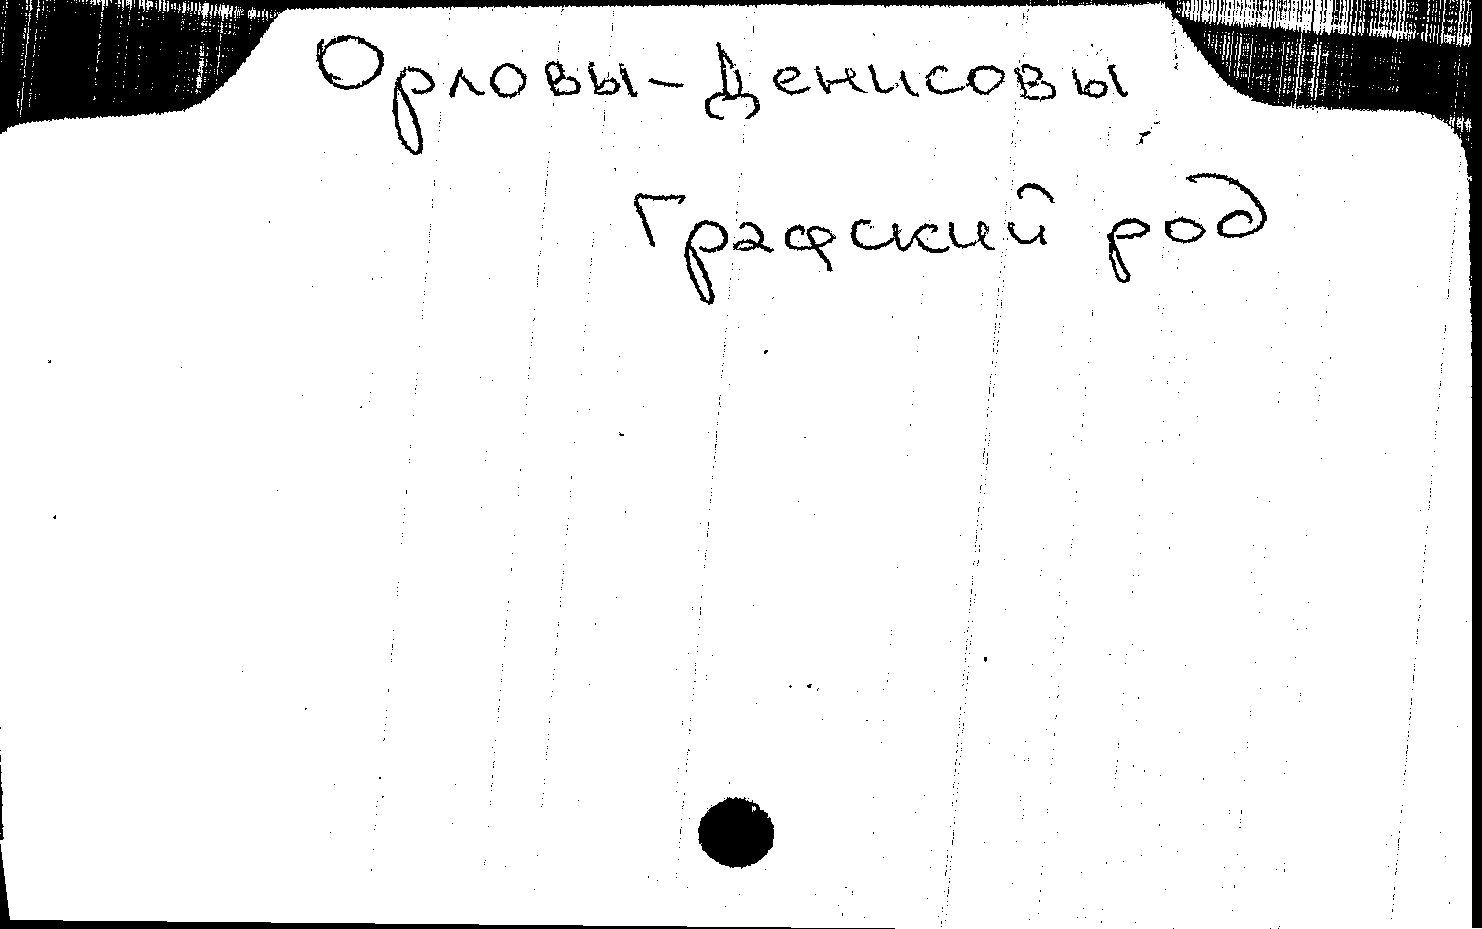 Орловы-Денисовы
Графский род